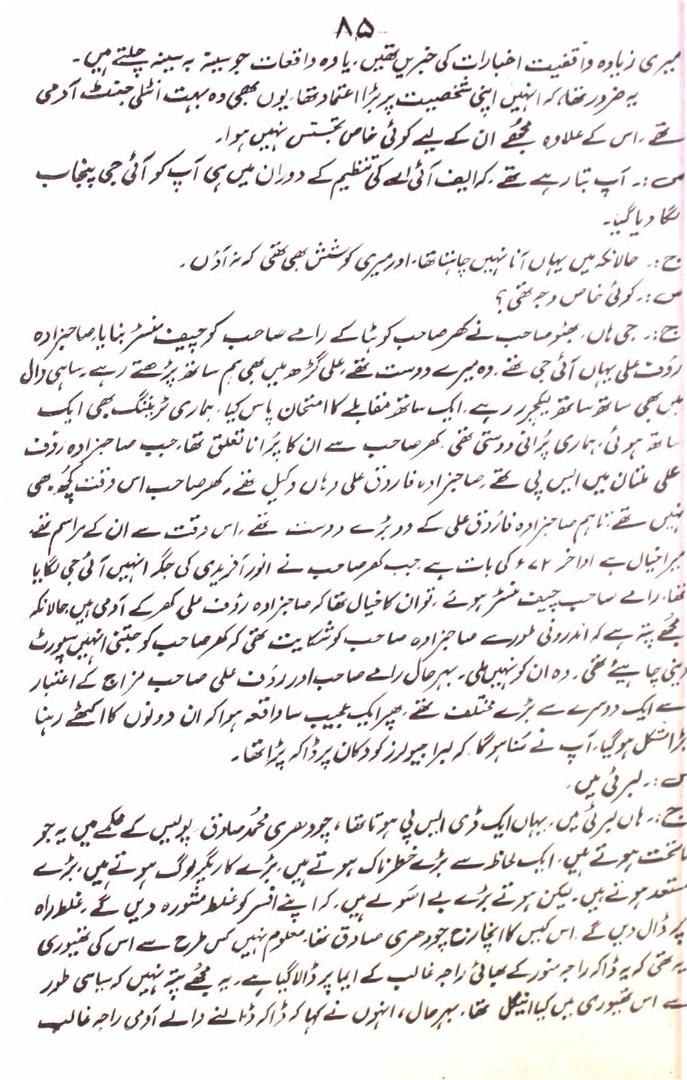 ۸۵
میری زیادہ واقفیت اخبارات کی خبریں تھیں، یا وہ واقعات جو سینہ بہ سینہ چلتے ہیں۔
یہ ضرور تھا، کہ انہیں اپنی شخصیت پر بڑا اعتماد تھا، یوں بھی وہ بہت انٹلی جنٹ آدمی
تھے، اس کے علاوہ مجھے ان کے لیے کوئی خاص تجسس نہیں ہوا۔
س:۔ آپ بتا رہے تھے، کہ ایف آئی اے کی تنظیم کے دوران میں ہی آپ کو آئی جی پنجاب
لگا دیا گیا۔
ج:۔ حالانکہ میں یہاں آنا نہیں چاہتا تھا، اور میری کوشش بھی تھی کہ نہ آؤں۔
س:۔ کوئی خاص وجہ تھی؟
ج:۔ جی ہاں، بھٹو صاحب نے کھر صاحب کو ہٹا کے رامے صاحب کو چیف منسٹر بنایا، صاحبزادہ
رؤف علی یہاں آئی جی تھے، وہ میرے دوست تھے، علی گڑھ میں بھی ہم ساتھ پڑھتے رہے، ساہی وال
میں بھی ساتھ ساتھ لیکچرر رہے، ایک ساتھ مقابلے کا امتحان پاس کیا، ہماری ٹریننگ بھی ایک
ساتھ ہوئی، ہماری پرانی دوستی تھی، کھر صاحب سے ان کا پرانا تعلق تھا، جب صاحبزادہ رؤف
علی ملتان میں ایس پی تھے، صاحبزادہ فاروق علی وہاں وکیل تھے، کھر صاحب اس وقت کچھ بھی
نہیں تھے، تاہم صاحبزادہ فاروق علی کے دو بڑے دوست تھے، اس وقت سے ان کے مراسم تھے
میرا خیال ہے اواخر ۷۲ء کی بات ہے جب کھر صاحب نے انور آفریدی کی جگہ انہیں آئی جی لگایا
تھا، رامے صاحب چیف منسٹر ہوئے، تو ان کا خیال تھا کہ صاحبزادہ رؤف علی کھر کے آدمی ہیں حالانکہ
مجھے پتہ ہے کہ اندرونی طور سے صاحبزادہ صاحب کو شکایت تھی کہ کھر صاحب کو جتنی انہیں سپورٹ
دینی چاہیئے تھی، وہ ان کو نہیں ملی۔ بہرحال رامے صاحب اور رؤف علی صاحب مزاج کے اعتبار
سے ایک دوسرے سے بڑے مختلف تھے، پھر ایک عجیب سا واقعہ ہوا کہ ان دونوں کا اکٹھے رہنا
بڑا مشکل ہو گیا، آپ نے سنا ہوگا کہ لبرا جیولرز کو دکان پر ڈاکہ پڑا تھا۔
س:۔ لبرٹی میں۔
ج:۔ ہاں لبرٹی میں، یہاں ایک ڈی ایس پی ہوتا تھا، چودھری محمد صادق، پولیس کے محکمے میں یہ جو
ماتحت ہوتے ہیں، ایک لحاظ سے بڑے خطرناک ہوتے ہیں، بڑے کاریگر لوگ ہوتے ہیں، بڑے
مستعد ہوتے ہیں، لیکن ہوتے بڑے بے اصولے ہیں، کہ اپنے افسر کو غلط مشورہ دیں گے، غلط راہ
پر ڈال دیں گے، اس کیس کا انچارج چودھری صادق تھا، معلوم نہیں کس طرح سے اس کی تھیوری
یہ تھی کہ یہ ڈاکہ راجہ منور کے بھائی راجہ غالب کے ایما پر ڈالا گیا ہے، یہ مجھے پتہ نہیں کہ سیاسی طور
سے اس تھیوری میں کیا اینگل تھا، بہرحال، انہوں نے کہا کہ ڈاکہ ڈالنے والے آدمی راجہ غالب